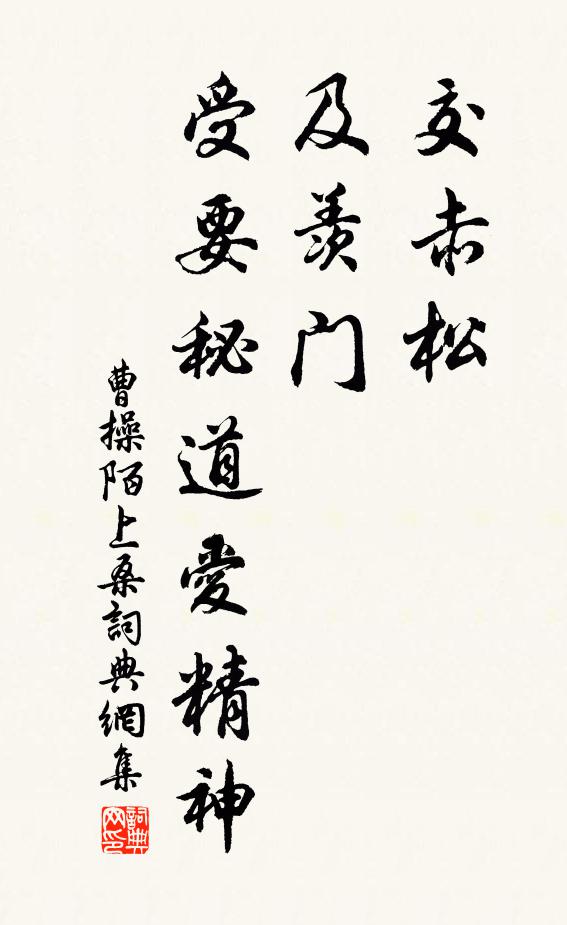 交赤松
及羨門
受要秘道愛精神
曹操陌上桑詞典網集
詞典网印